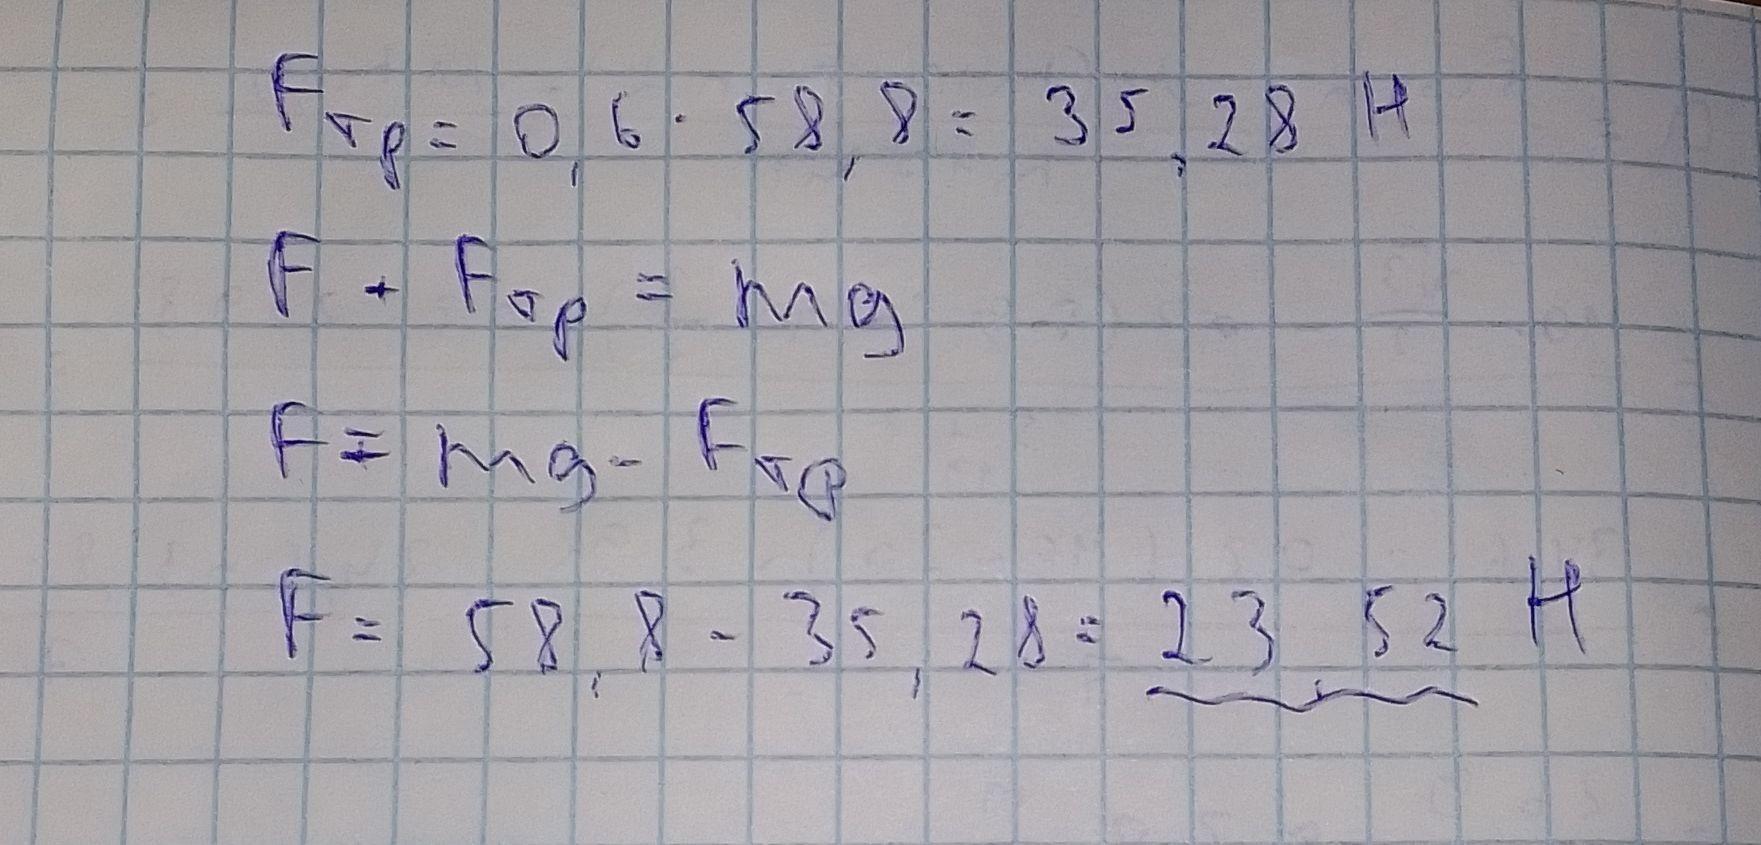 Fтр = 0,6 · 58,8 = 35,28 Н
F + Fтр = mg
F = mg - Fтр
F = 58,8 - 35,28 = 23,52 Н